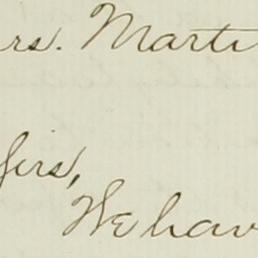 rs. Marti
firs,
We hav